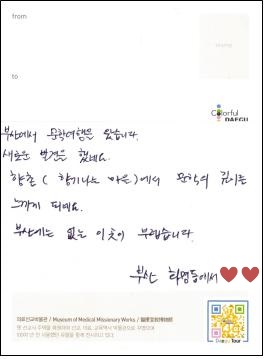 from
to
Colorful
DAEGU
부산에서 문학여행을 왔습니다.
새로운 발견을 했네요.
향촌 ( 향기나는 마을)에서 문학의 깊이를
느끼게 되네요.
부산에는 없는 이곳이 부럽습니다.
부산 화명동에서 ♥♥
의료선교박물관 / Museum of Medical Missionary Works /
Daegu Tour